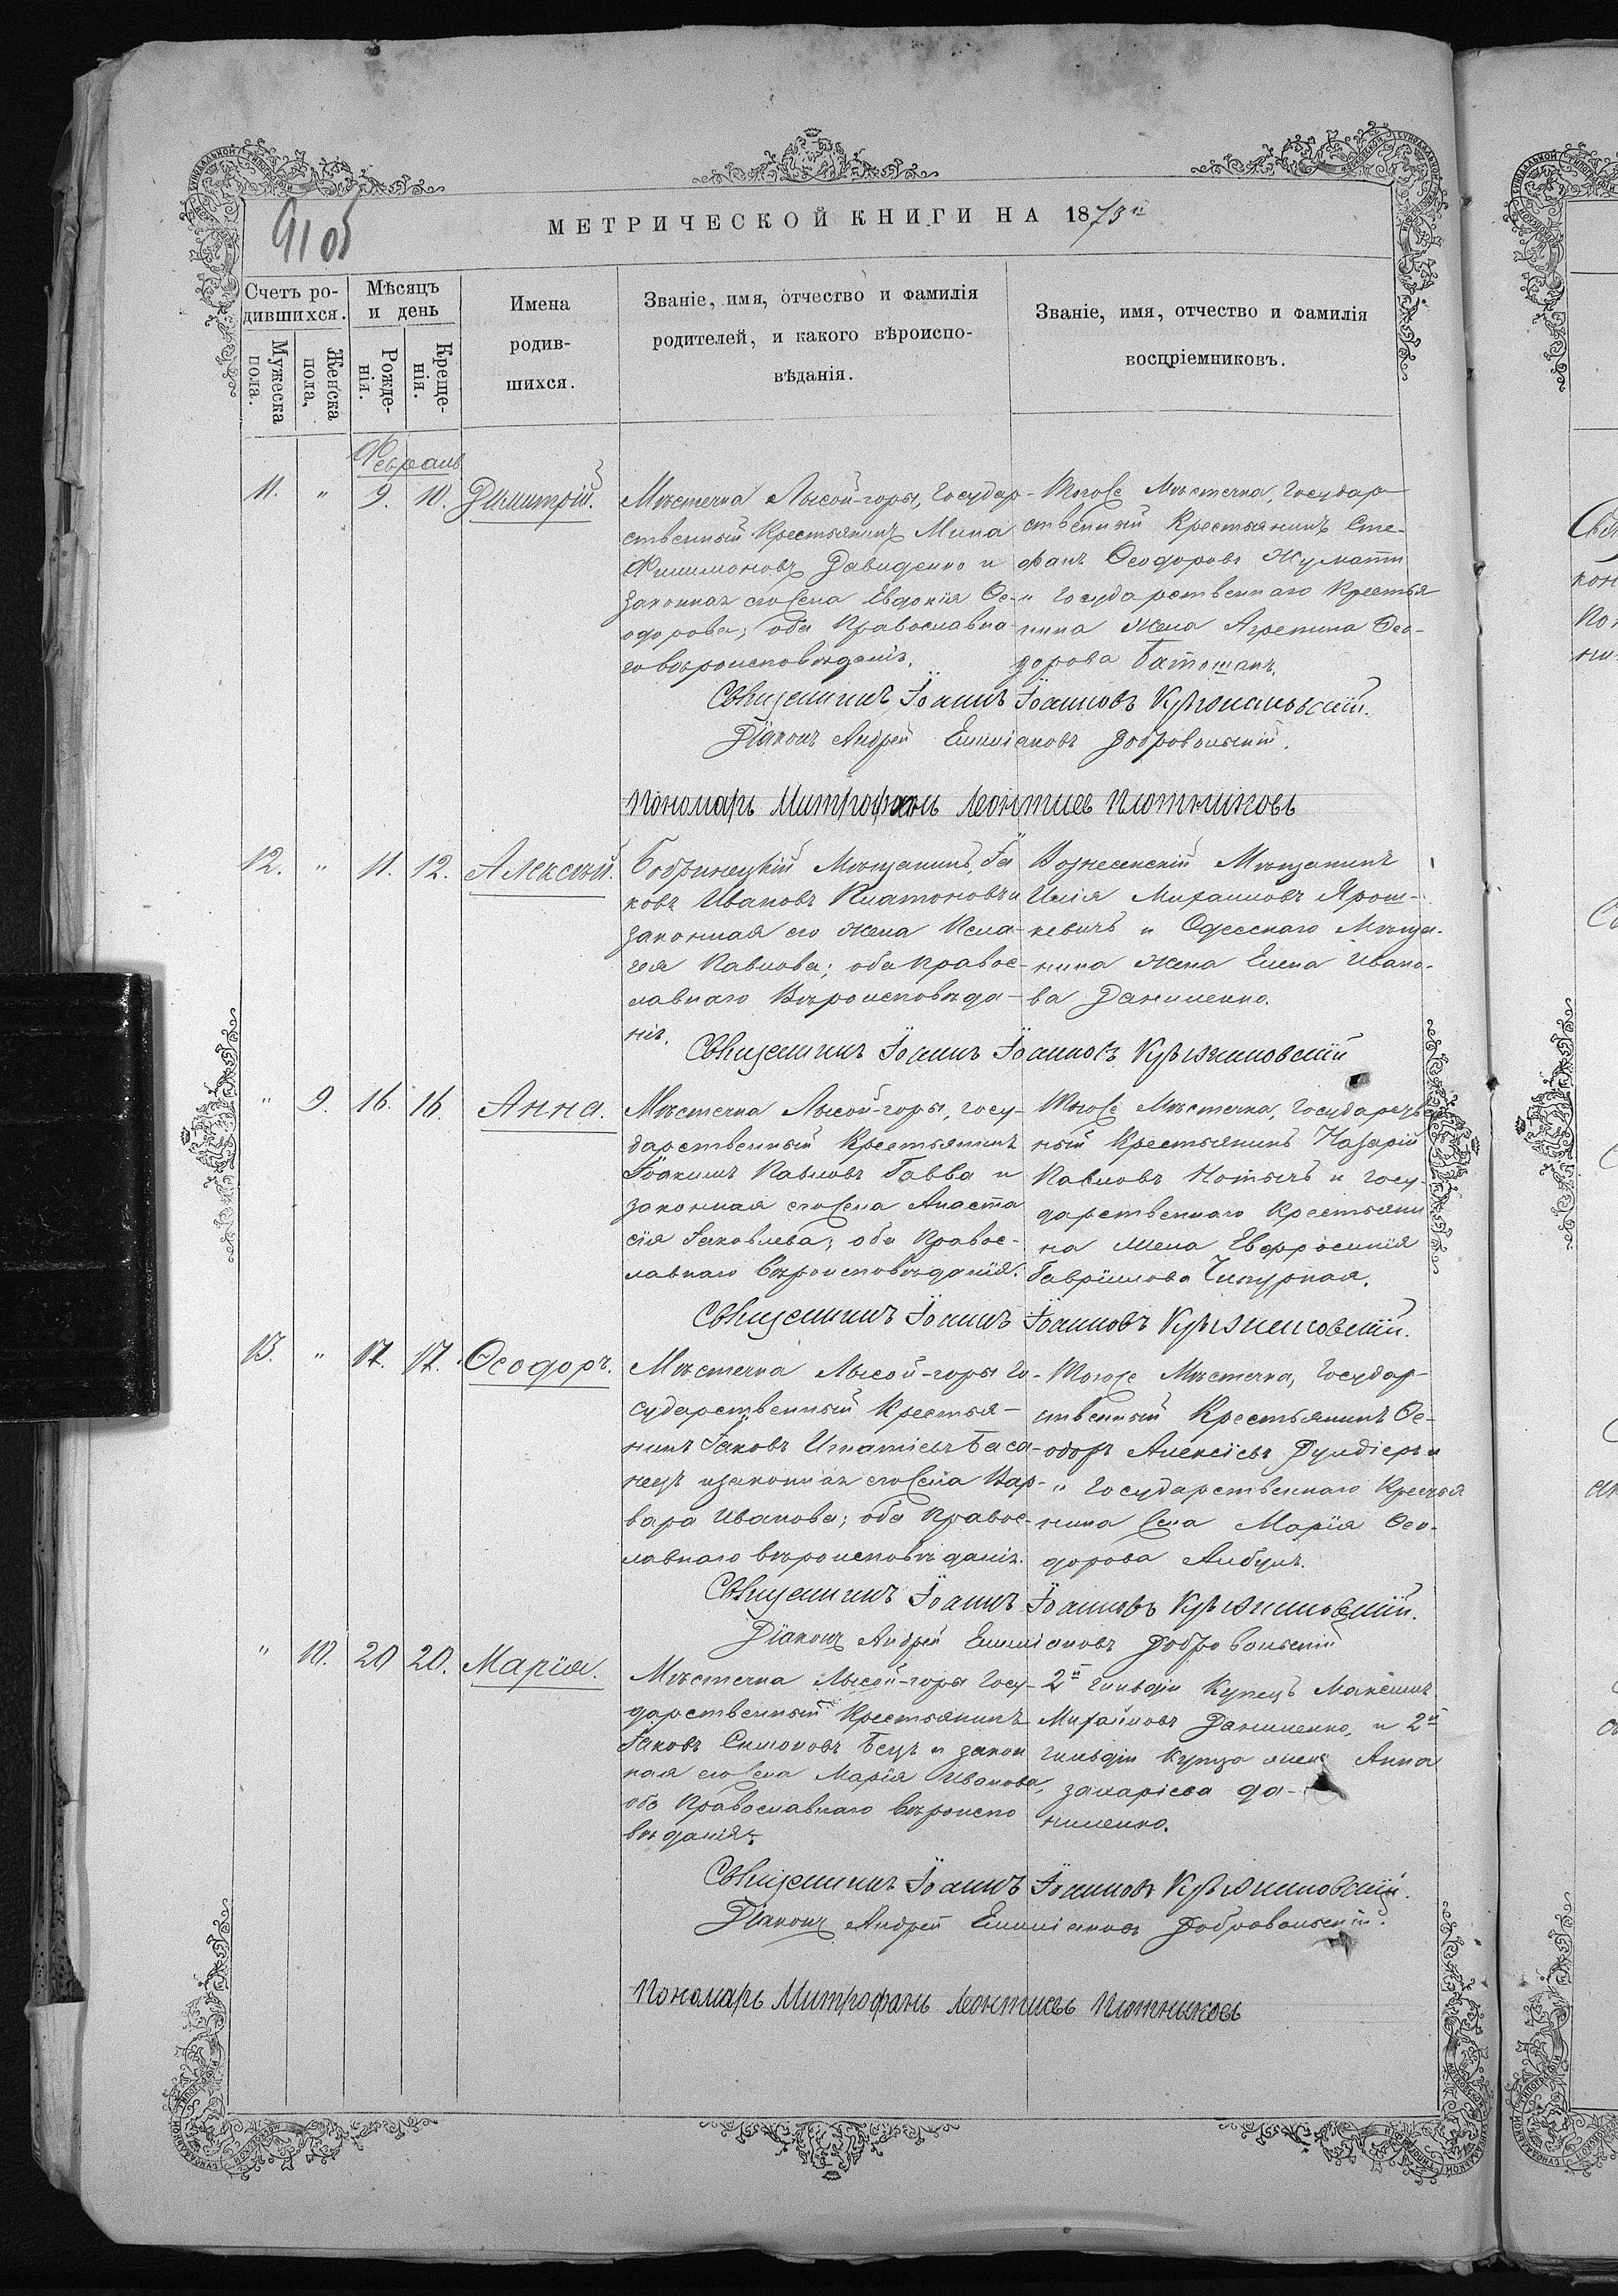 МЕТРИЧЕСКОЙ КНИГИ НА 1873й
Счетъ ро-
дившихся.
Мужеска пола.
Женска пола,
Мѣсяцъ
и день
Рожде-
нія.
Креще-
нія.
Имена
родив-
шихся.
Званіе, имя, отчество и фамилія
родителей, и какого вѣроиспо-
вѣданія.
Званіе, имя, отчество и фамилія
воспріемниковъ.
Февраль
11. " 9. 10. Димитрій.
Мѣстечка Лысой-горы, Государ-
ственный Крестьянинъ Мина
Филимоновъ Давиденко и
законная его жена Евдокія Ѳе-
одорова; оба Православна
го вѣроисповѣданія.
Тогоже Мѣстечка, Государ
ственный Крестьянинъ Сте-
фанъ Ѳеодоровъ
и Государственнаго Крестья
нина жена Агрепина Ѳео-
дорова
Священникъ Іоаннъ Іоанновъ Крыжановскій.
Діаконъ Андрей Емиліановъ Добровольскій.
Пономарь Митрофанъ Леонтиевъ Плотниковъ
12. " 11. 12. Алексѣй.
Бобринецкій Мѣщанинъ, Іа
ковъ Ивановъ Платоновъ и
законная его жена Пела-
гія Павлова; оба правос-
лавнаго Вѣроисповѣда-
нія.
Вознесенскій Мѣщанинъ
Илія Михаиловъ Ярош-
кевичъ и Одесскаго Мѣща-
нина жена Елена Ивано-
ва Даниленко.
Священникъ Іоаннъ Іоанновъ Крыжановскій
" 9. 16. 16. Анна.
Мѣстечка Лысой-горы, госу-
дарственный Крестьянинъ
Іоакимъ Павловъ Гавва и
законная его жена Анаста
сія Іаковлева; оба Правос-
лавнаго вѣроисповѣданія.
Тогоже Мѣстечка, Государствен
ный Крестьянинъ Назарій
Павловъ и госу-
дарственнаго Крестьяни
на жена Евфросинія
Гавріилова
Священникъ Іоаннъ Іоанновъ Крыжановскій.
13. " 17. 17. Ѳеодоръ.
Мѣстечка Лысой-горы Го-
сударственный Крестья-
нинъ Іаковъ Игнатіевъ Баса-
нецъ и законная его жена Вар-
вара Иванова; оба Правос-
лавнаго вѣроисповѣданія.
Тогоже Мѣстечка, Государ-
ственный Крестьянинъ Ѳе-
одоръ Алексіевъ
и Государственнаго Крестья
нина жена Марія Ѳео-
дорова
Священникъ Іоаннъ Іоанновъ Крыжановскій.
Діаконъ Андрей Емиліановъ Добровольскій
" 10. 20 20. Марія.
Мѣстечка Лысой-горы Госу-
дарственный Крестьянинъ
Іаковъ Симоновъ Бецъ и закон
ная его жена Марія Иванова,
оба Православнаго вѣроиспо
вѣданія.
2й гильдіи Купецъ Максимъ
Михаиловъ Даниленко, и 2й
гильдіи Купца жена Анна
Захаріева Да-
ниленко.
Священникъ Іоаннъ Іоанновъ Крыжановскій.
Діаконъ Андрей Емиліановъ Добровольскій.
Пономарь Митрофанъ Леонтиевъ Плотниковъ